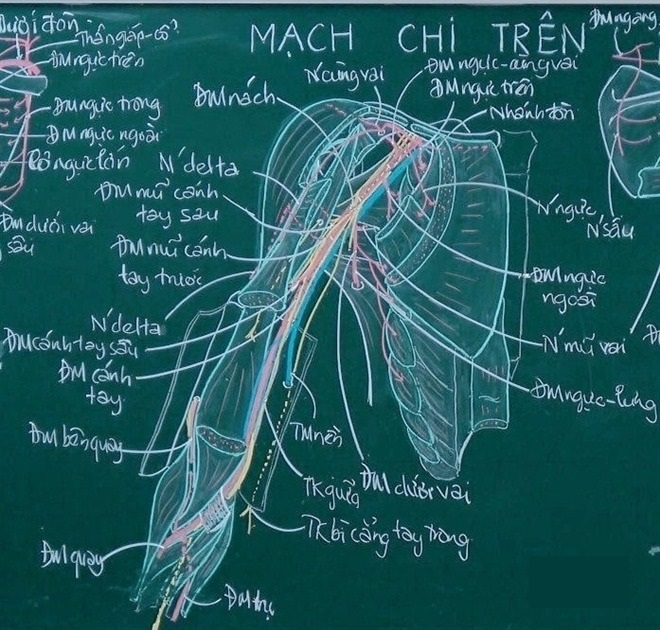 MẠCH CHI TRÊN
Dưới đòn
Thân giáp-cổ
ĐM ngực trên
ĐM ngực trong
ĐM ngực ngoài
Cơ ngực lớn
ĐM dưới vai
sâu
N' cùng vai
ĐM nách
N' delta
ĐM mũ cánh
tay sau
ĐM mũ cánh
tay trước
N' delta
ĐM cánh tay sâu
ĐM cánh
tay
ĐM bên quay
ĐM quay
ĐM trụ
ĐM ngực-cùng vai
ĐM ngực trên
Nhánh đòn
N' ngực
ĐM ngực
ngoài
N' mũ vai
ĐM ngực-lưng
TM nền
TK giữa
ĐM dưới vai
TK bì cẳng tay trong
ĐM ngang
N' sâu